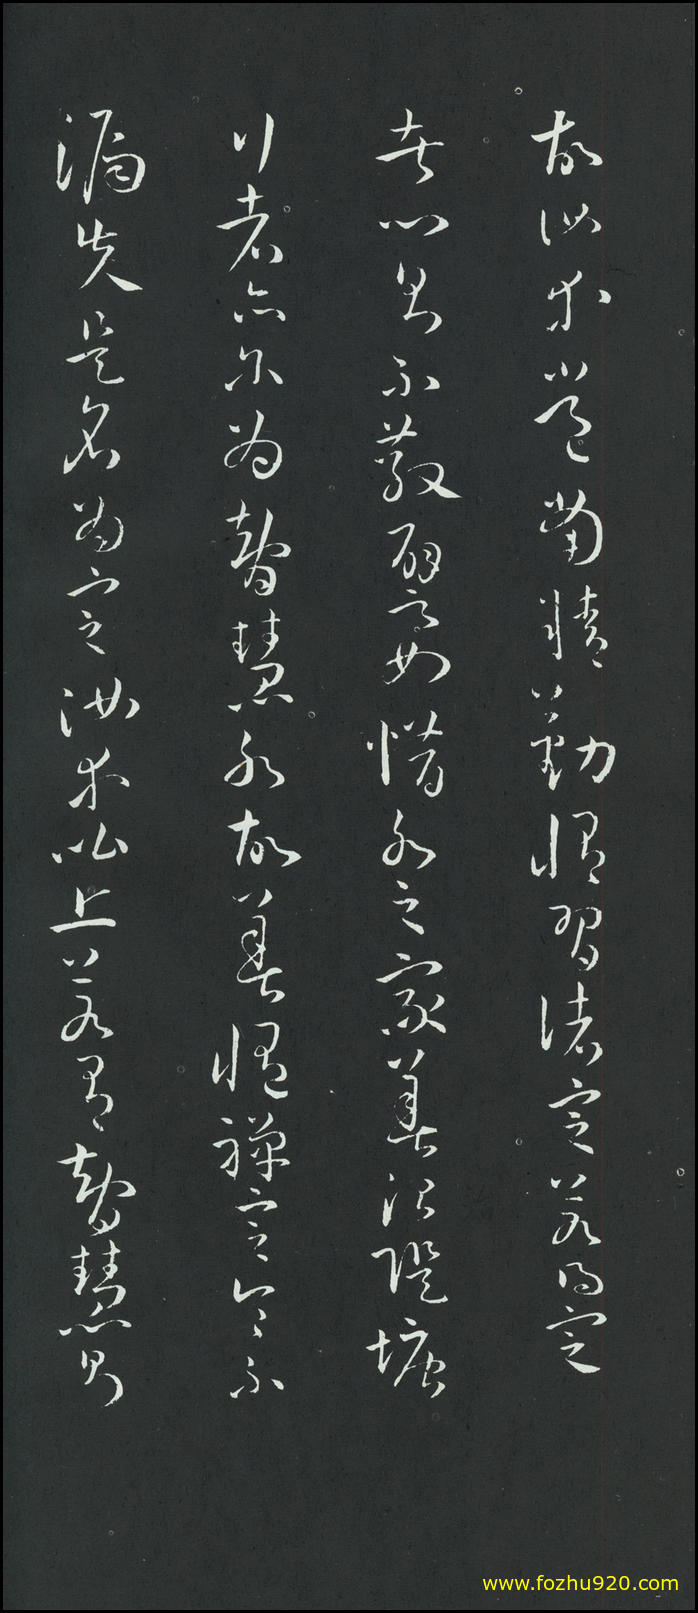 故汝等當精勤修習諸定若得定
者心則不散譬如惜水之家善治堤塘
行者亦爾為智慧水故善修禪定令不
漏失是名為定汝等比丘若有智慧則
www.fozhu920.com